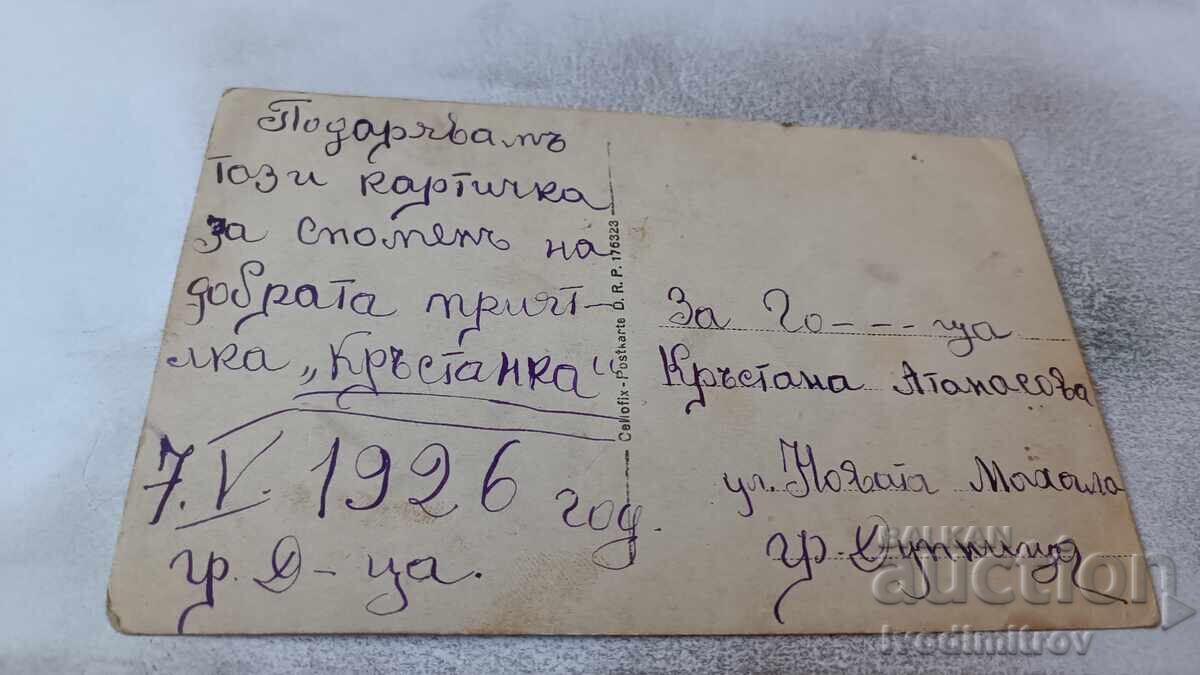 Подарявамъ
този картичка
за споменъ на
добрата прият-
лка „Кръстанка“
7.V.1926 год.
гр. Д-ца.
Cellofix-Postkarte D.R.P. 176323
За Го---ца
Кръстана Атанасова
ул. Новата Махала
гр. Дупница
BALKAN
auction
Ivodimitrov